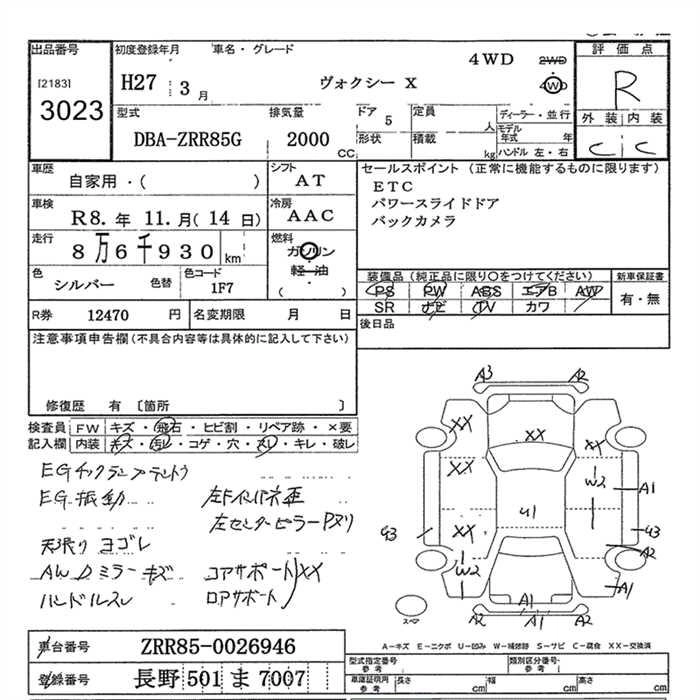 出品番号
[2183]
3023
初度登録年月
H27 3月
車名・グレード
ヴォクシー X
4WD
2WD
4WD
評価点
R
外装 内装
C C
型式
DBA-ZRR85G
排気量
2000 CC
ドア 5
形状
定員 人
積載 kg
ディーラー・並行
モデル年式 年
ハンドル 左・右
車歴
自家用・( )
シフト
AT
車検
R8. 年 11. 月( 14 日)
冷房
AAC
走行
8万6千930 km
燃料
ガソリン
軽・油
( )
色
シルバー
色替
色コード
1F7
R券 12470 円
名変期限 月 日
セールスポイント (正常に機能するものに限ります)
ETC
パワースライドドア
バックカメラ
装備品(純正品に限り○をつけてください)
PS PW ABS エアB AW
SR ナビ TV カワ
新車保証書
有・無
後日品
注意事項申告欄(不具合内容等は具体的に記入して下さい)
修復歴 有 〔箇所 〕
検査員記入欄
FW キズ・飛石・ヒビ割・リペア跡・×要
内装 キズ・汚レ・コゲ・穴・スレ・キレ・破レ
EGチェックランプテントウ
EG振動
天張りヨゴレ
AWDミラーキズ
ハンドルスレ
左センターピラーPヌリ
コアサポートXX
ロアサポート
A3 A2
XX XX XX
XX W2 A1
U1
G3 XX U3
W2 A2
A1 A1
A1 A2
スペア
A-キズ E-エクボ U-凹み W-補修跡 S-サビ C-腐食 XX-交換済
車台番号
ZRR85-0026946
登録番号
長野 501 ま 7007
型式指定番号
参考
類別区分番号
参考
車庫証明用
参考
長さ cm
幅 cm
高さ cm